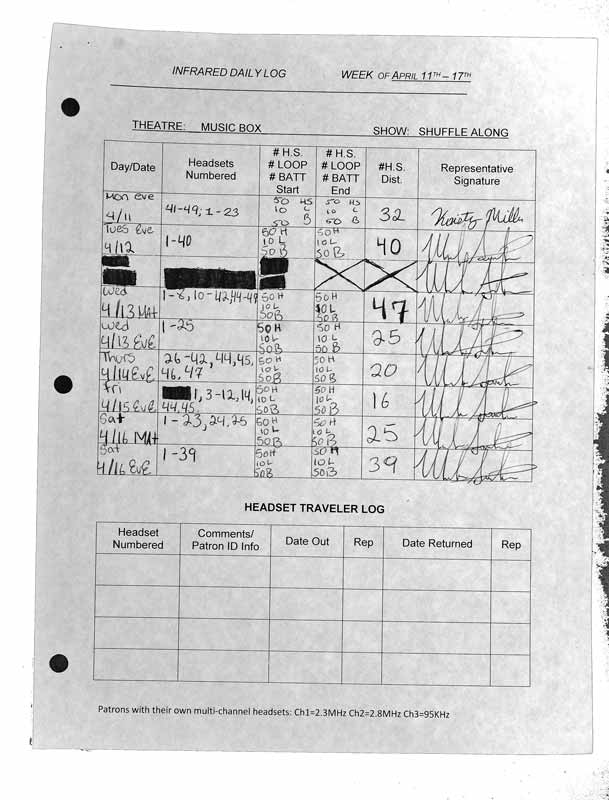 INFRARED DAILY LOG WEEK OF APRIL 11TH – 17TH
THEATRE: MUSIC BOX SHOW: SHUFFLE ALONG
Day/Date Headsets Numbered # H.S. # LOOP # BATT Start # H.S. # LOOP # BATT End #H.S. Dist. Representative Signature
Mon Eve 4/11 41-49, 1-23 50 HS 10 L 50 B 50 HS 10 L 50 B 32 Miller
Tues Eve 4/12 1-40 50H 10L 50B 50H 10L 50B 40
Wed 4/13 MAt 1-8, 10-42, 44-47 50H 10L 50B 50H 10L 50B 47
Wed 4/13 EvE 1-25 50H 10L 50B 50H 10L 50B 25
Thurs 4/14 EvE 26-42, 44, 45, 46, 47 50H 10L 50B 50H 10L 50B 20
Fri 4/15 EvE 1, 3-12, 14, 44, 45, 50H 10L 50B 50H 10L 50B 16
Sat 4/16 MAt 1-23, 24, 25 50H 10L 50B 50H 10L 50B 25
Sat 4/16 EvE 1-39 50H 10L 50B 50H 10L 50B 39
HEADSET TRAVELER LOG
Headset Numbered Comments/ Patron ID Info Date Out Rep Date Returned Rep
Patrons with their own multi-channel headsets: Ch1=2.3MHz Ch2=2.8MHz Ch3=95KHz